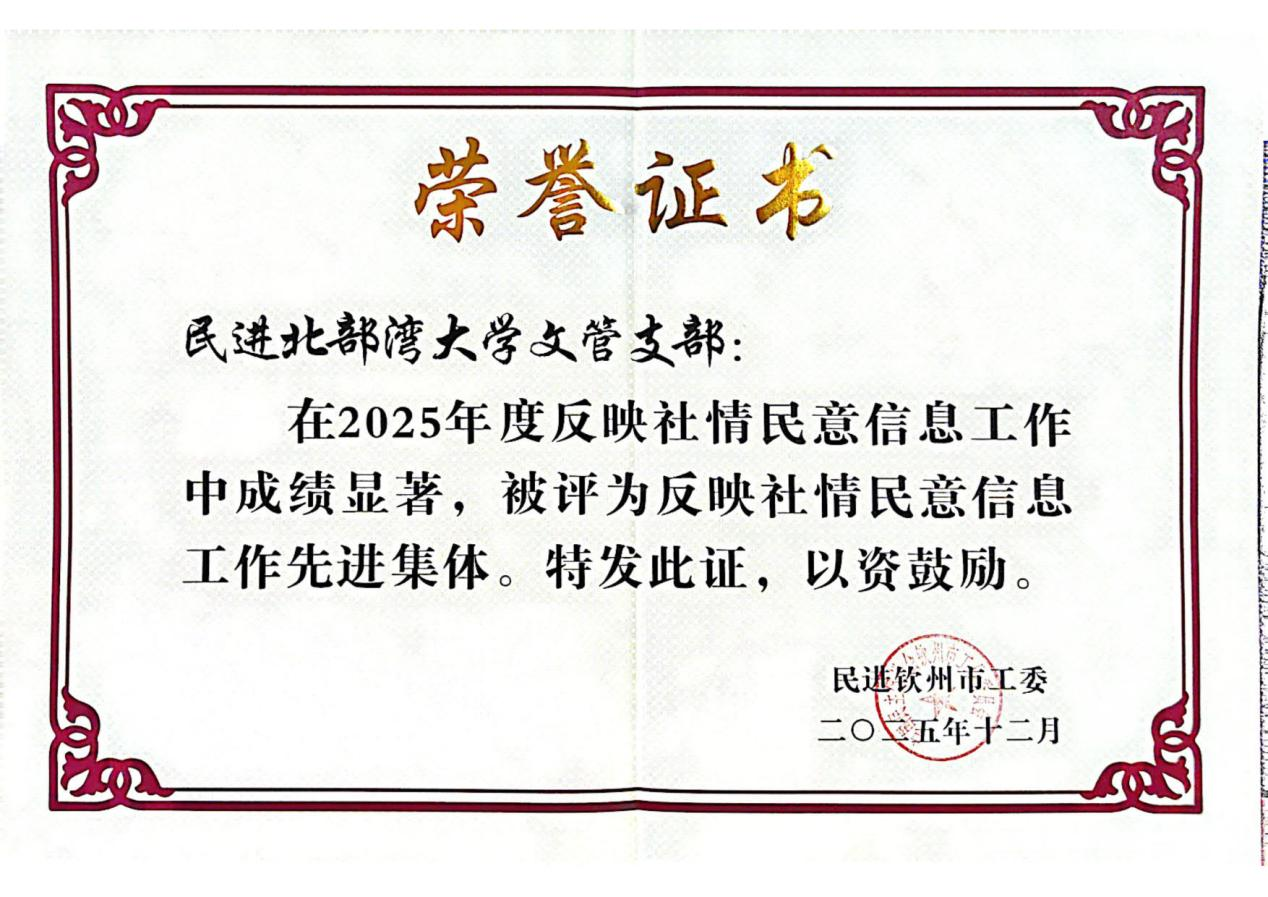 荣誉证书
民进北部湾大学文管支部：
在2025年度反映社情民意信息工作
中成绩显著，被评为反映社情民意信息
工作先进集体。特发此证，以资鼓励。
民进钦州市工委
二〇二五年十二月